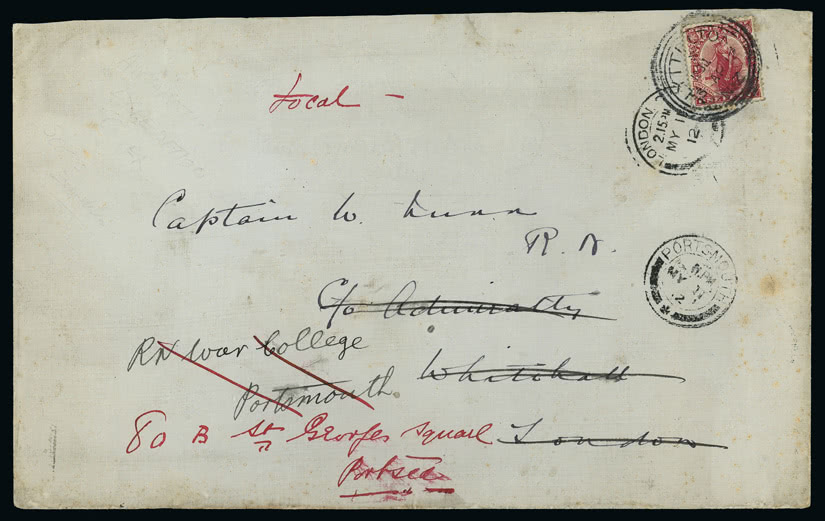 Local -
LONDON
2.15 PM
MY 1
12
Captain W. Lunn
R. N.
PORTSMOUTH
MY
12
C/o Admiralty
RN War College
Whitehall
Portsmouth
80 B St Georges Square London
Portsea